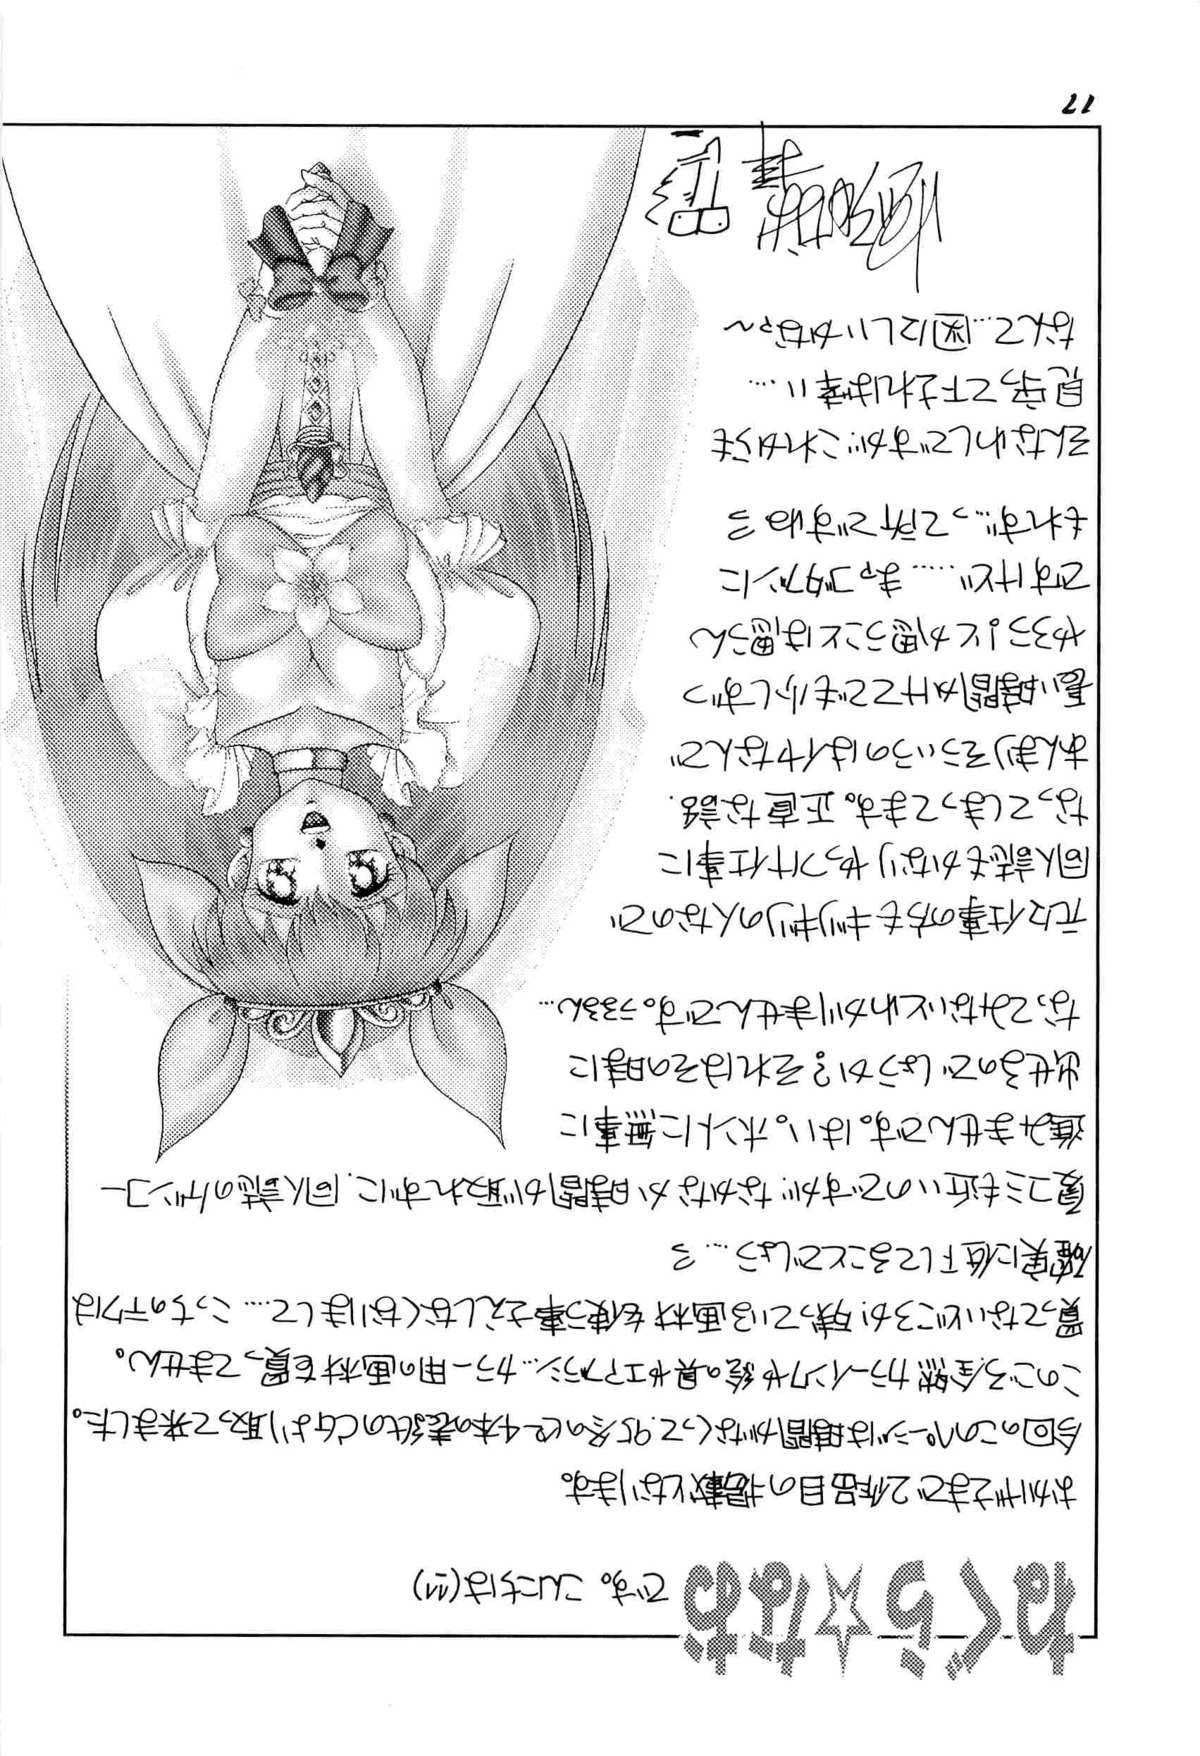 わくら☆なお です。こんにちは(^^)
おかげさまで2作品目の掲載となります。
今回のこのページは時間がなくって95冬のピー4本の表紙のCGより取って来ました。
このごろ全然カラーインクや絵の具やエアブラシ…カラー用の画材を買ってません。
買ってないどころか残っている画材を使う事さえしなくなりまして……こっちのテクは
確実に低下してることでしょう…ヨ
夏コミも近いのですが、なかなか時間が取れずに、同人誌のゲンコー
進みませんです。はい。ホントに無事に
出せるのでしょうか？それはその時に
なってみないとわかりませんです。うるるん…
元々仕事の方もギリギリの人なので
同人誌もかなりやっつけ仕事に
なってしまってます。正直な話、
あんまりそういうのはイヤなんで
長い時間かけてでも少しずつ
やろう！とか思うことは思うん
ですけど……まァゴタブンに
もれず…って所ですねヨ
そんなわしですが、これからも
見守って下されば幸い……
なんて…図にしいかなァ〜
17